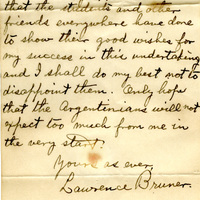 that the students and other
friends everywhere have done
to show their good wishes for
my success in this undertaking
and I shall do my best not to
disappoint them. Only hope
that the Argentinians will not
expect too much from me in
the very start.
Yours as ever,
Lawrence Bruner.